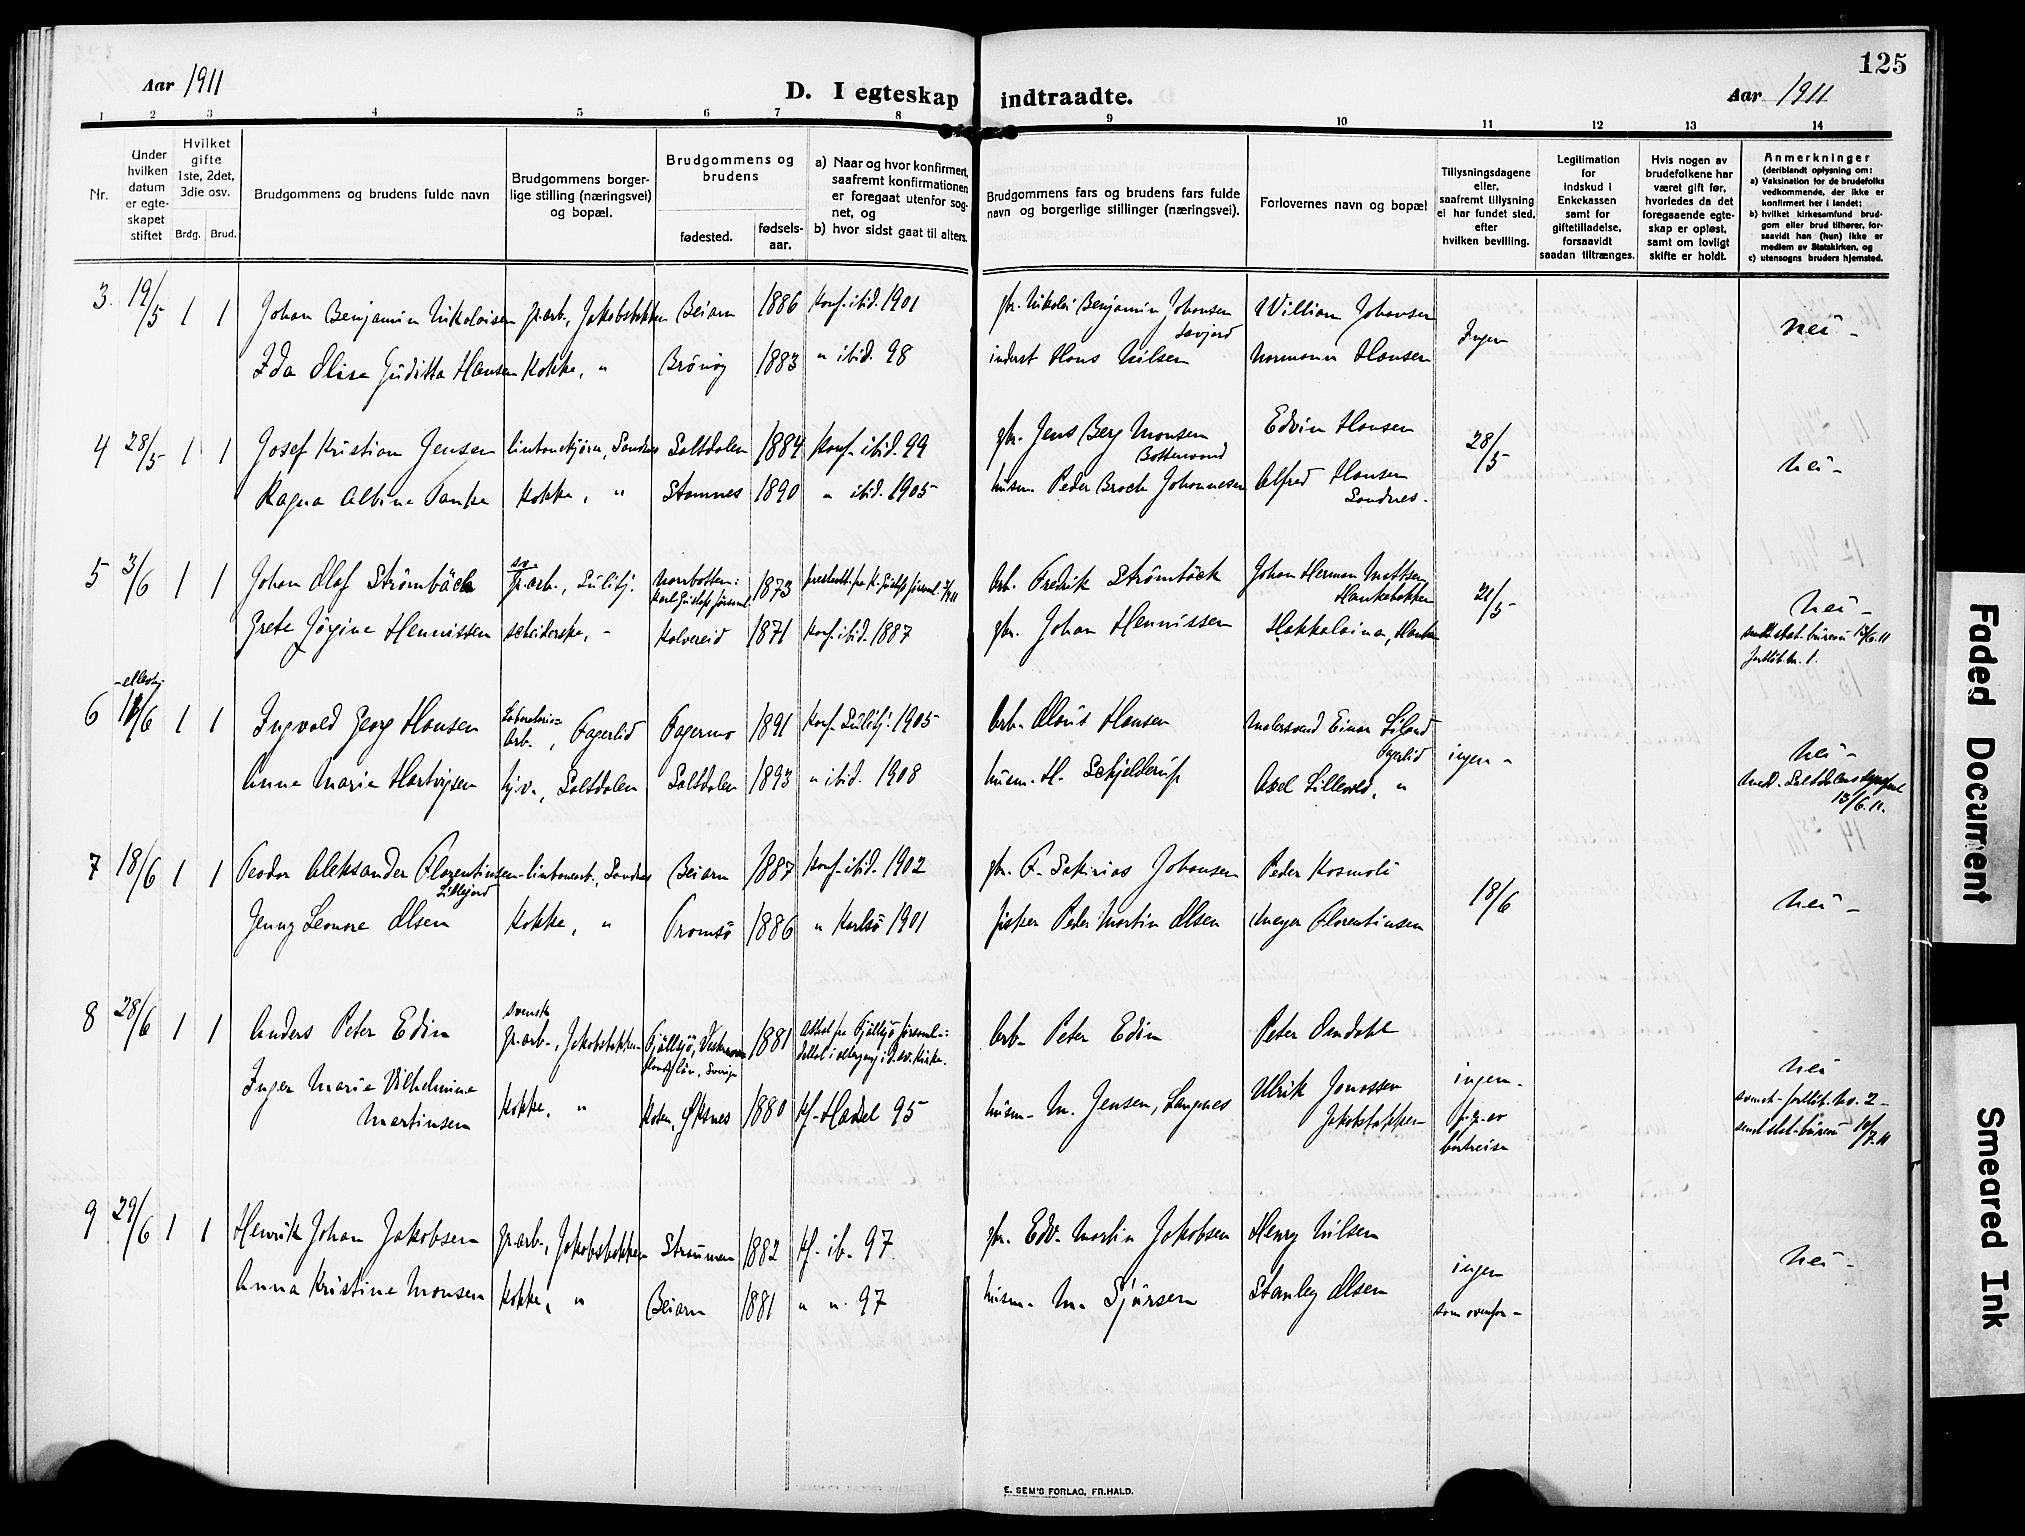 125
Aar 1911
D. I egteskap indtraadte.
Aar 1911
1 2 3 4 5 6 7 8 9 10 11 12 13 14
Nr.
Under hvilken datum er egte-skapet stiftet
Hvilket gifte 1ste, 2det, 3die osv.
Brdg. Brud.
Brudgommens og brudens fulde navn
Brudgommens borger-lige stilling (næringsvei) og bopæl.
Brudgommens og brudens
fødested.
fødsels-aar.
a) Naar og hvor konfirmert, saafremt konfirmationen er foregaat utenfor sog-net, og
b) hvor sidst gaat til alters.
Brudgommens fars og brudens fars fulde navn og borgerlige stillinger (næringsvei).
Forlovernes navn og bopæl
Tillysningsdagene eller, saafremt tillysning ei har fundet sted, efter hvilken bevilling.
Legitimation for indskud i Enkekassen samt for giftetilladelse, forsaavidt saadan tiltrænges.
Hvis nogen av brudefolkene har været gift før, hvorledes da det foregaaende egte-skap er opløst, samt om lovligt skifte er holdt.
Anmerkninger (deriblandt oplysning om:
a) Vaksination for de brudefolks vedkommende, der ikke er konfirmert her i landet;
b) hvilket kirkesamfund brud-gom eller brud tilhører, for-saavidt han (hun) ikke er medlem av Statskirken, og
c) utensogns bruders hjemsted.
3. 19/5 1 1 Johan Benjamin Nikolaisen gr.arb., Jakobsbakken Beiarn 1886 Konf. ibid. 1901 gbr. Nikolai Benjamin Johansen Savjord William Johansen Ingen nei -
Ida Elise Juditta Hansen Kokke, " Brönöy 1883 " ibid. 98 inderst Hans Nilsen Normann Hansen
4 28/5 1 1 Josef Kristian Jensen Sandnes Saltdalen 1884 Konf. ibid. 99 gbr. Jens Berg Monsen Edvin Hansen 28/5 nei -
Ragna Albine Kokke, " Stamnes 1890 " ibid. 1905 husm. Peder Broch Johannesen Alfred Hansen Sandnes.
5 3/6 1 1 Johan Olof Strömbäck sv. gr.arb., Sulitj. Norrbotten: Karl Gustafs församl. 1873 Arb. Fredrik Strömbäck Johan Herman Mattsen Hankabakken 21/5 nei -
Grete Jörgine Hennissen skeiderske, - Kolvereid 1871 Konf. ibid 1887 gbr. Johan Hennissen
sendt stat. bureau 13/6.11
6 11/6 1 1 Ingvald Georg Hansen Laboratorie-arb., Fagerlid Fagermo 1891 Konf. Sulitj. 1905 Arb. Olaus Hansen Malersvend Einar Liland Fagerlid ingen - nei -
Anna Marie Hartvigsen hjv., Saltdalen Saltdalen 1893 " ibid. 1908 husm. H. Schjelderup Axel Lillevold, "
13/6.11.
7 18/6 1 1 Teodor Aleksander Florentinsen Lillejord Sandnes Beiarn 1887 Konf. ibid. 1902 gbr. F. Sakirias Johansen Peder Kosmoli 18/6 nei -
Jenny Leonore Olsen Kokke, " Tromsö 1886 " Karlsö 1901 fisker Peder Martin Olsen Meyer Florentinsen
8 28/6 1 1 Anders Peter Edin svensk gr.arb., Jakobsbakken Fjällsjö, 1881 Arb. Peter Edin Peter Omdahl nei
Inger Marie Vilhelmine Martinsen Kokke, " Øksnes 1880 Kf. Hadsel 95 husm. M. Jensen, Langnes Ulrik Jonassen Jakobsbakken ingen. p.g.av bortreise
sendt stat. bureau 10/7.11
9 29/6 1 1 Henrik Johan Jakobsen gr.arb., Jakobsbakken Straumen 1882 Kf. ib. 97. gbr. Edv. Martin Jakobsen Henry Nilsen ingen som ovenfor - nei -
Anna Kristine Monsen Kokke, " Beiarn 1881 " " 97 husm. M. Sjursen Stanley Olsen
E. SEM'S FORLAG, FR.HALD.
Faded Document
Smeared Ink